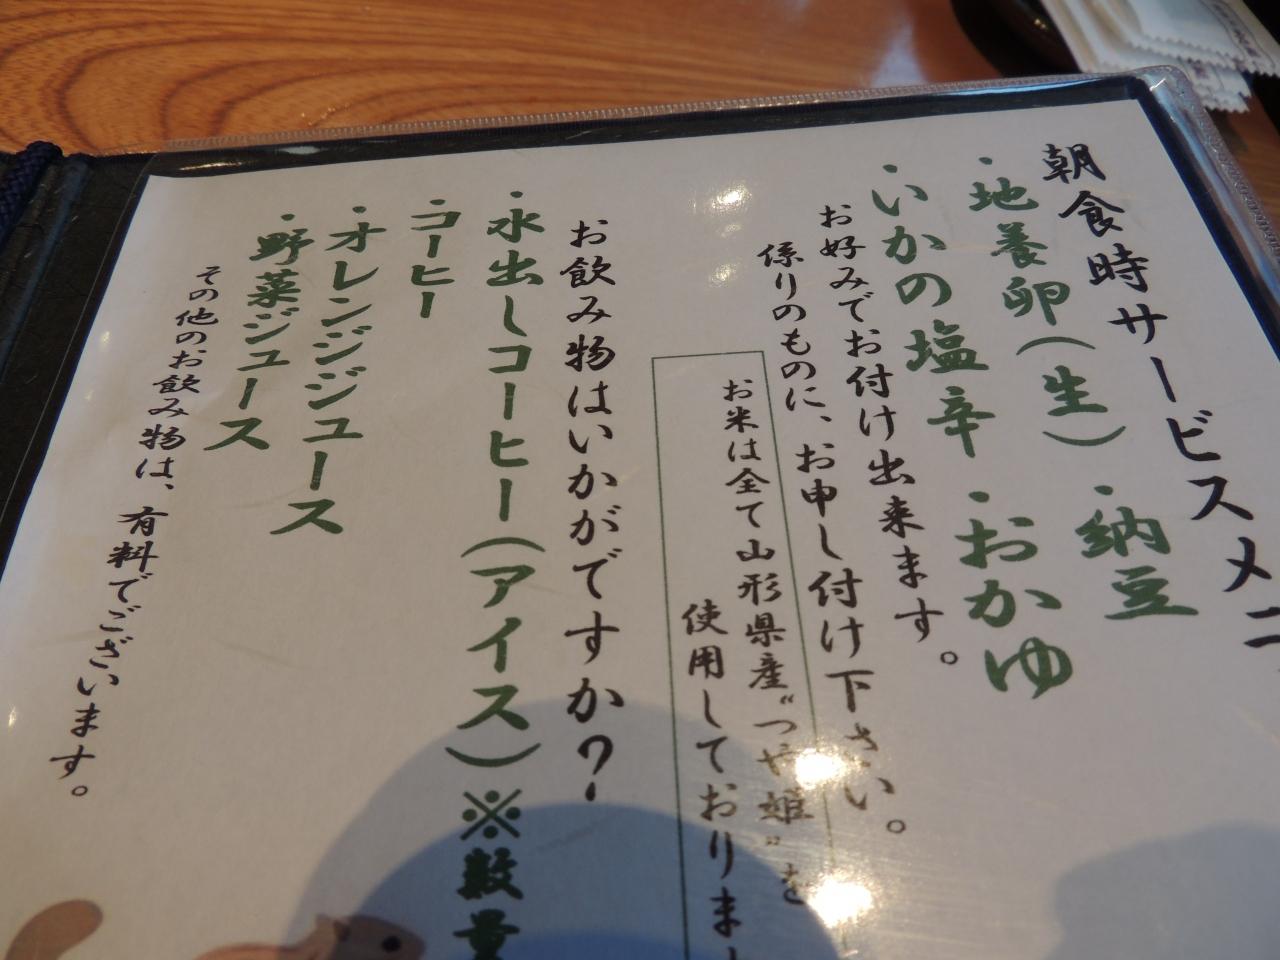 朝食時サービスメニ
・地養卵(生) ・納豆
・いかの塩辛 ・おかゆ
お好みでお付け出来ます。
係りのものに、お申し付け下さい。
お米は全て山形県産“つや姫”を
使用しておりま
お飲み物はいかがですか?
・水出しコーヒー(アイス)※数量
・コーヒー
・オレンジジュース
・野菜ジュース
その他のお飲み物は、有料でございます。